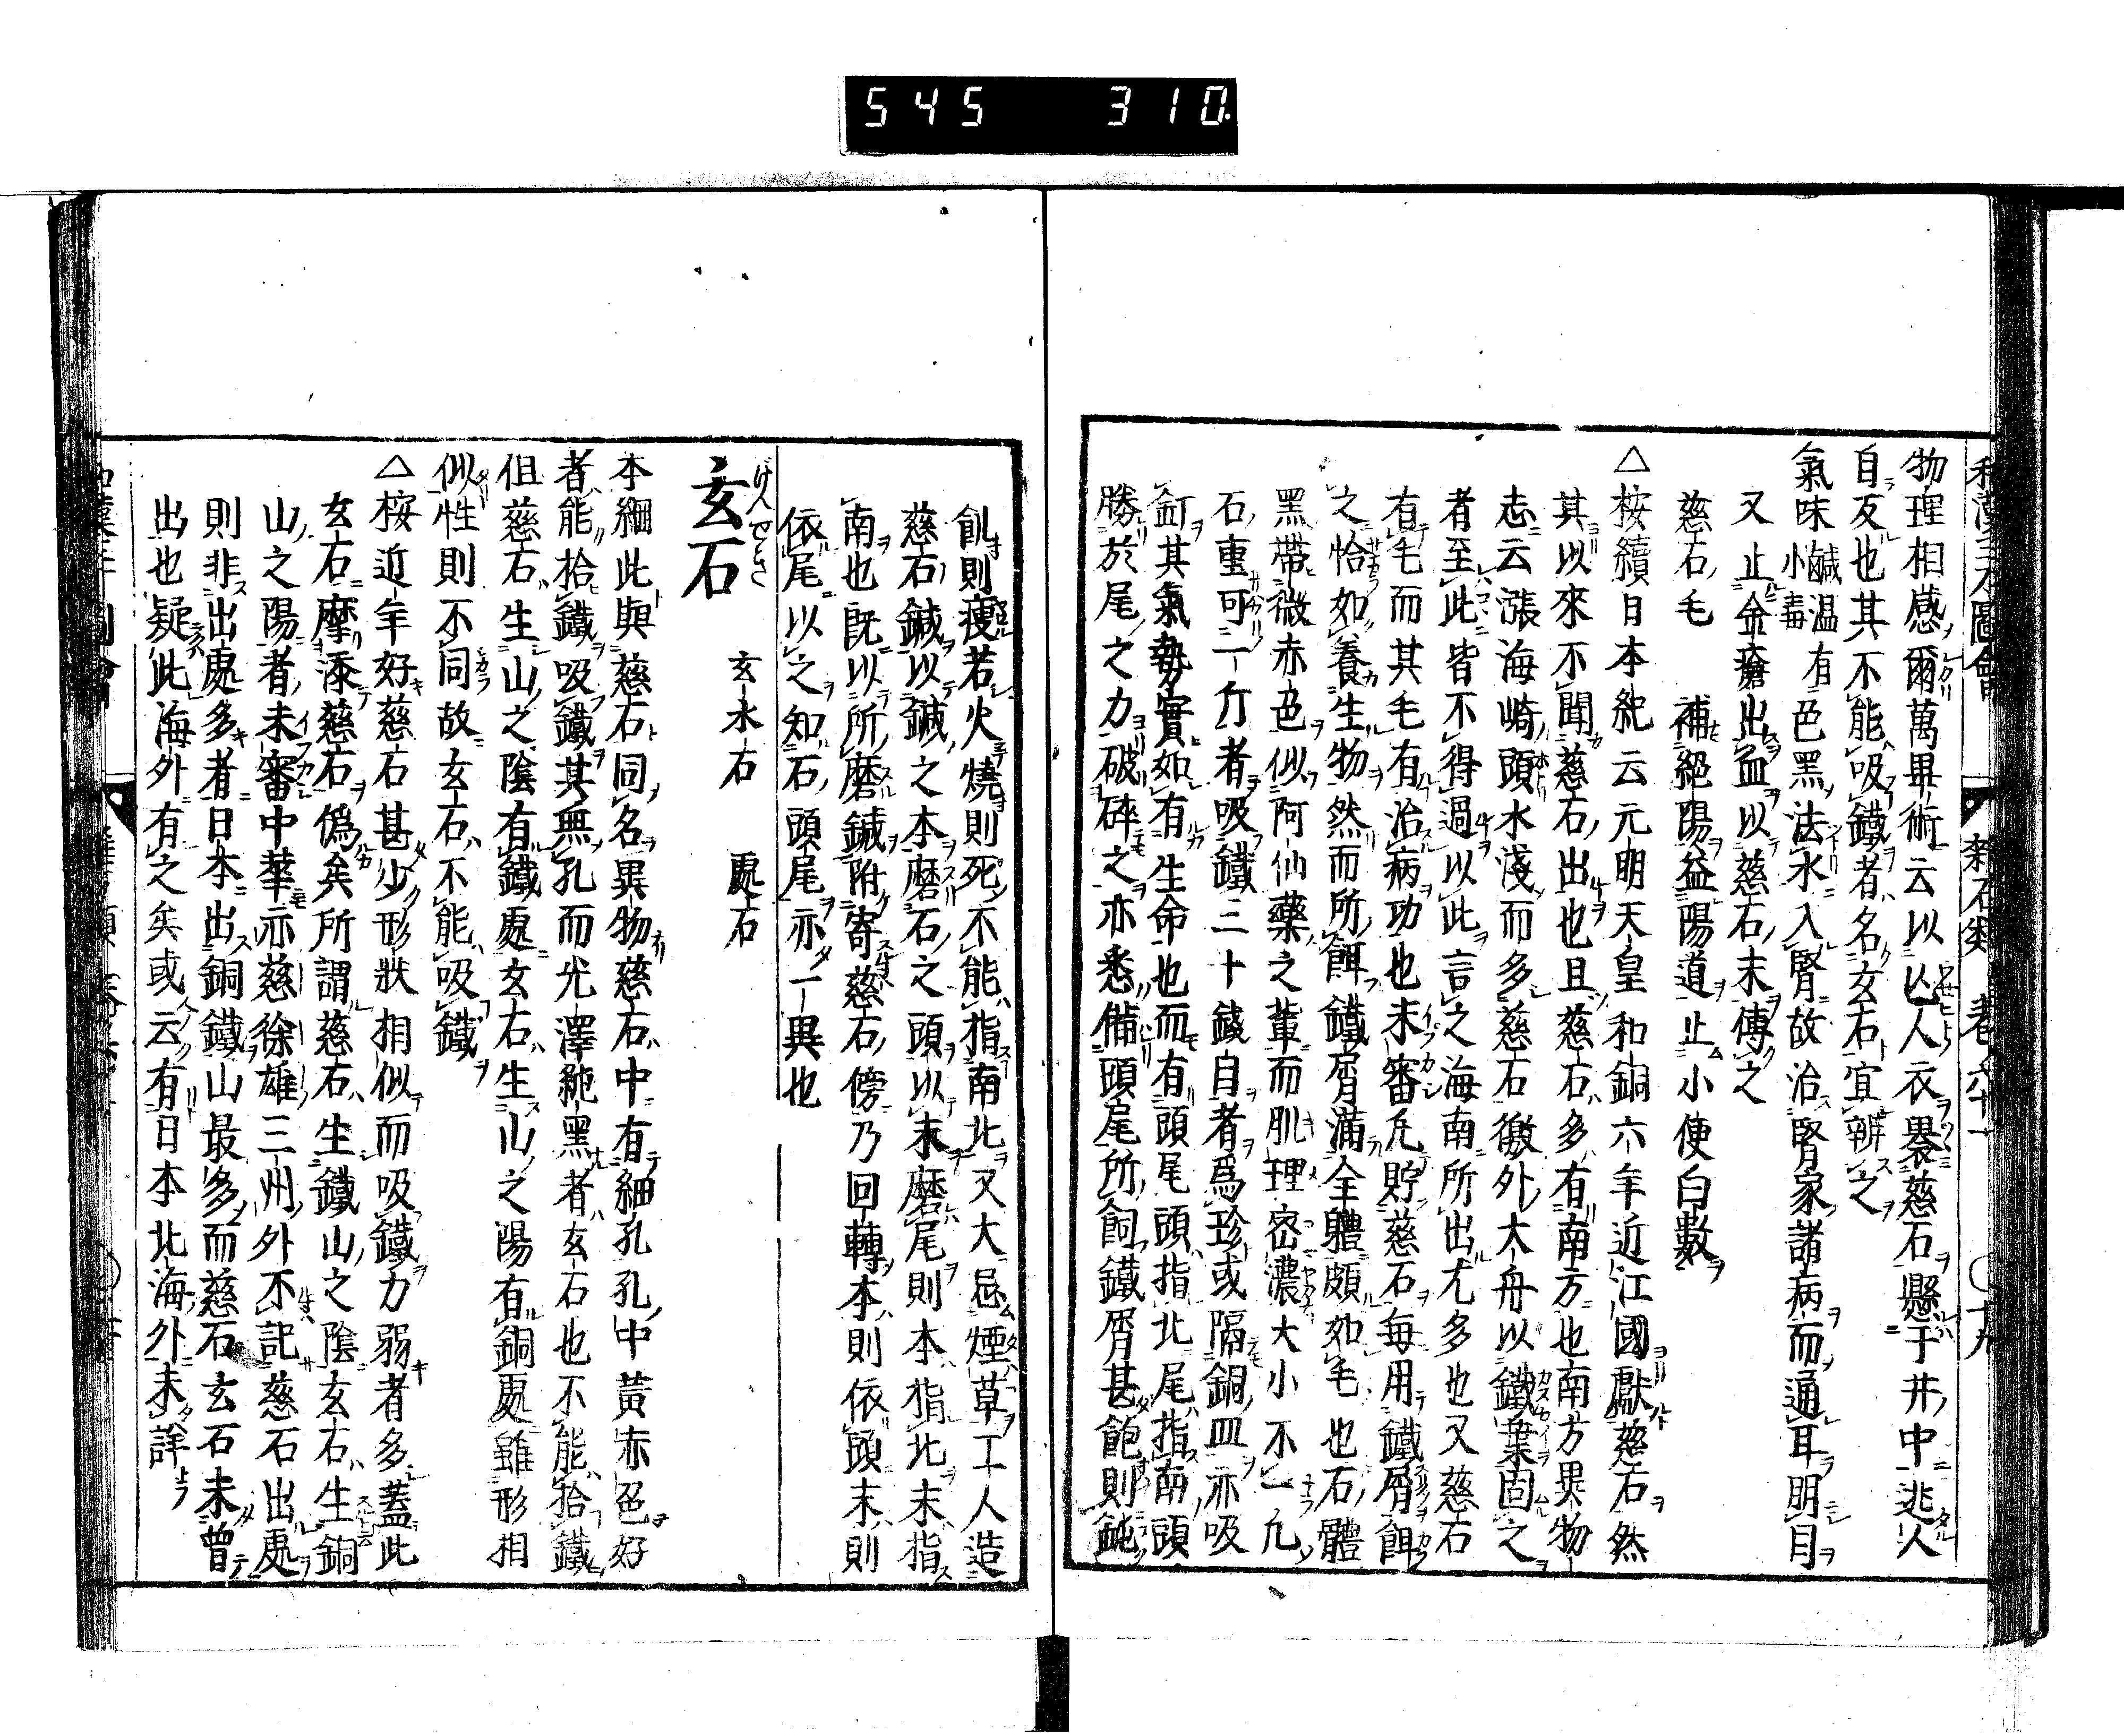 545 310
和漢三才圖會 雜石類 卷ノ六十一 〇十九
物理相感爾萬畢術云以亾人衣裹慈石懸于井中逃人
自反也其不能吸鐵者名玄石宜辨之
氣味鹹温有小毒色黑法水入腎故治腎家諸病而通耳明目
又止金瘡出血以慈石末傅之
慈石毛 補絕陽益陽道止小便白數
△按續日本紀云元明天皇和銅六年近江國獻慈石然
其以來不聞慈石出也且慈石多有南方也南方異物
志云漲海崎頭水淺而多慈石徼外大舟以鐵葉固之
者至此皆不得過以此言之海南所出尤多也又慈石
有毛而其毛有治病功也未審凡貯慈石每用鐵屑餌
之恰如養生物然而所餌鐵屑滿全體頗如毛也石體
黑帶微赤色似阿仙藥之輩而肌理密濃大小不一凢
石重可一斤者吸鐵三十錢自者爲珍或隔銅皿亦吸
釭其氣勢實如有生命也而有頭尾頭指北尾指南頭
勝於尾之力破碎之亦悉備頭尾所飼鐵屑甚飽則鈍
飢則瘦若火燒則死不能指南北又大忌煙草工人造
慈石鍼以鍼之本磨石之頭以末磨尾則本指北末指
南也既以所磨鍼附寄慈石傍乃回轉本則依頭末則
依尾以之知石頭尾亦一異也
玄石 げんせき 玄水石 處石
本綱此與慈石同名異物慈石中有細孔孔中黃赤色好
者能拾鐵吸鐵其無孔而光澤純黑者玄石也不能拾鐵
但慈石生山之陰有鐵處玄石生山之陽有銅處雖形相
似性則不同故玄石不能吸鐵
△按近年好慈石甚少形狀相似而吸鐵力弱者多蓋此
玄石摩漆慈石僞矣所謂慈石生鐵山之陰玄石生銅
山之陽者未審中華亦慈徐雄三州外不記慈石出處
則非出處多者日本出銅鐵山最多而慈石玄石未曾
出也疑此海外有之矣或云有日本北海外未詳